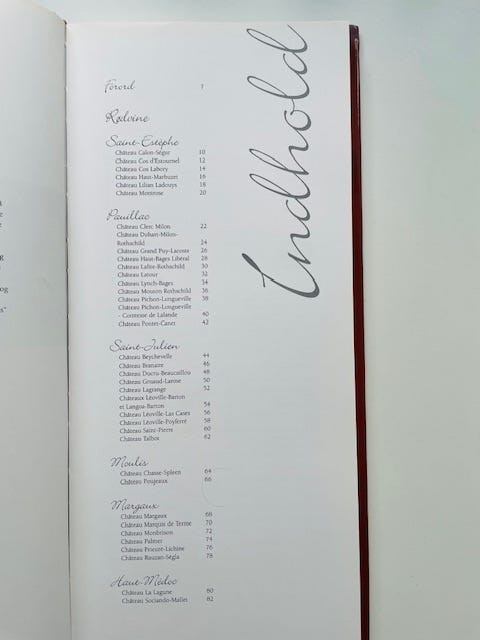 Indhold
Forord 7
Rødvine
Saint-Estèphe
Château Calon-Ségur 10
Château Cos d'Estournel 12
Château Cos Labory 14
Château Haut-Marbuzet 16
Château Lilian Ladouys 18
Château Montrose 20
Pauillac
Château Clerc Milon 22
Château Duhart-Milon-
Rothschild 24
Château Grand Puy-Lacoste 26
Château Haut-Bages Libéral 28
Château Lafite-Rothschild 30
Château Latour 32
Château Lynch-Bages 34
Château Mouton Rothschild 36
Château Pichon-Longueville 38
Château Pichon-Longueville
- Comtesse de Lalande 40
Château Pontet-Canet 42
Saint-Julien
Château Beychevelle 44
Château Branaire 46
Château Ducru-Beaucaillou 48
Château Gruaud-Larose 50
Château Lagrange 52
Châteaux Léoville-Barton
et Langoa-Barton 54
Château Léoville-Las Cases 56
Château Léoville-Poyferré 58
Château Saint-Pierre 60
Château Talbot 62
Moulis
Château Chasse-Spleen 64
Château Poujeaux 66
Margaux
Château Margaux 68
Château Marquis de Terme 70
Château Monbrison 72
Château Palmer 74
Château Prieuré-Lichine 76
Château Rauzan-Ségla 78
Haut-Médoc
Château La Lagune 80
Château Sociando-Mallet 82
og